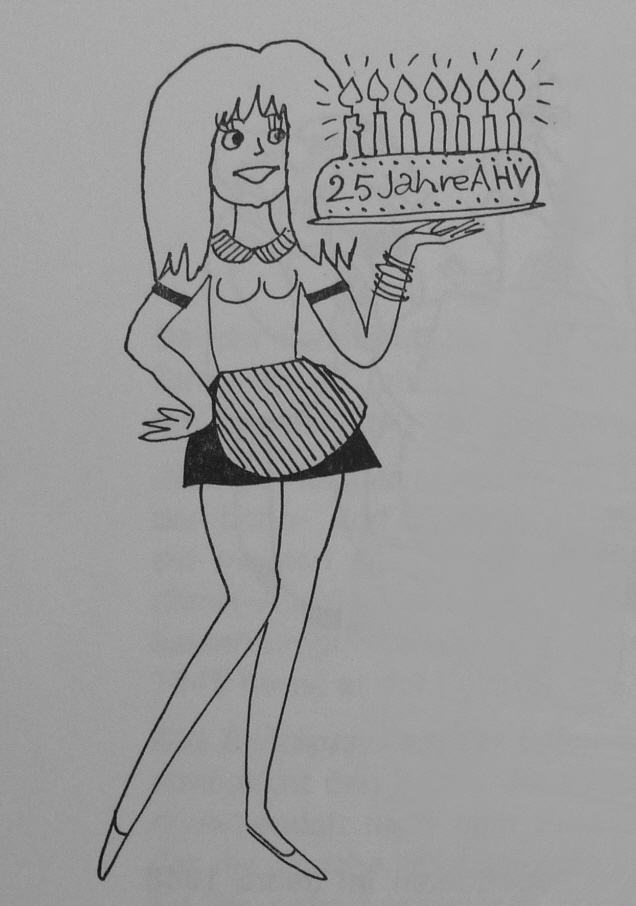 25 Jahre AHV